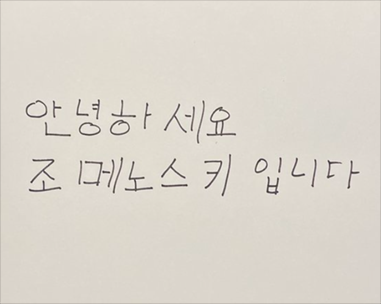 안녕하세요
조 메노스키 입니다